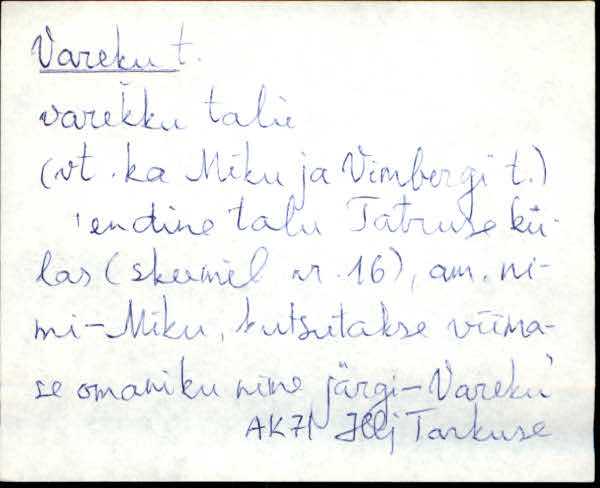 Vareku t.
varekku talu
(vt. ka Miku ja Vimbergi t.)
endine talu Tatruse kü-
las (skeemil nr. 16), am. ni-
mi - Miku, kutsutakse viima-
se omaniku nime järgi - Vareku
AK 71 Tarkuse